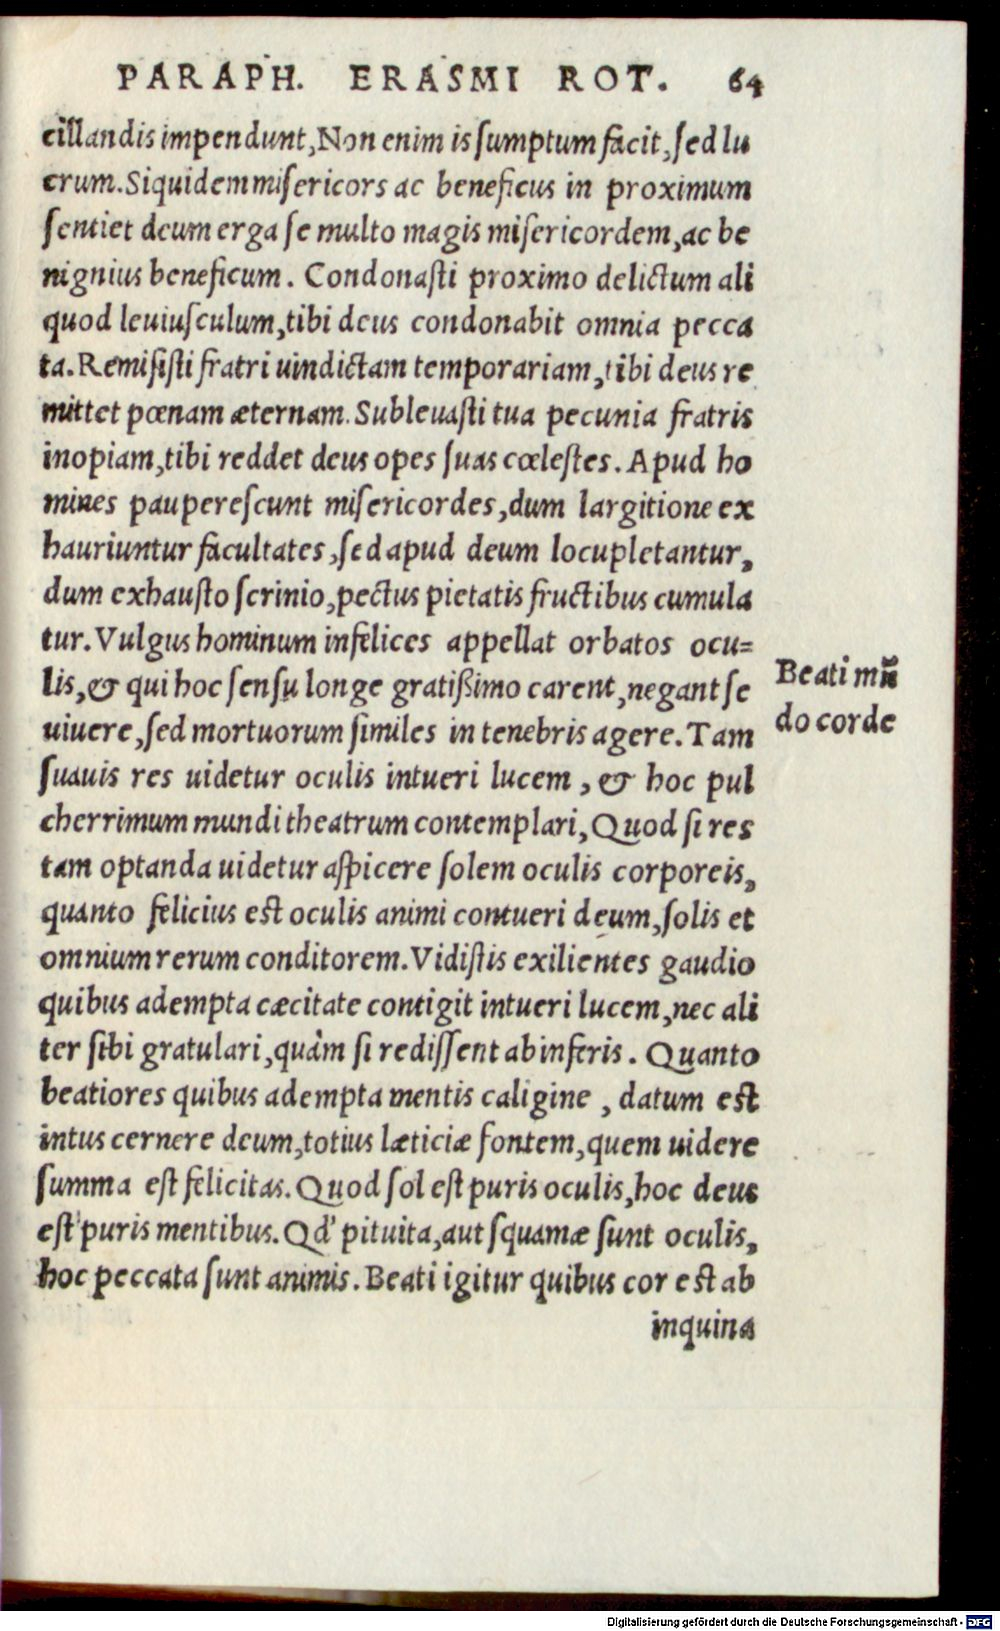 PARAPH. ERASMI ROT. 64
cillandis impendunt, Non enim is ſumptum facit, ſed lu
crum. Siquidem miſericors ac beneficus in proximum
ſentiet deum erga ſe multo magis miſericordem, ac be
nignius beneficum. Condonaſti proximo delictum ali
quod leuiuſculum, tibi deus condonabit omnia pecca
ta. Remiſiſti fratri uindictam temporariam, tibi deus re
mittet pœnam æternam. Subleuaſti tua pecunia fratris
inopiam, tibi reddet deus opes ſuas cœleſtes. Apud ho
mines paupereſcunt miſericordes, dum largitione ex
hauriuntur facultates, ſed apud deum locupletantur,
dum exhauſto ſcrinio, pectus pietatis fructibus cumula
tur. Vulgus hominum infelices appellat orbatos ocu=
lis, & qui hoc ſenſu longe gratißimo carent, negant ſe
uiuere, ſed mortuorum ſimiles in tenebris agere. Tam
ſuauis res uidetur oculis intueri lucem, & hoc pul
cherrimum mundi theatrum contemplari, Quod ſi res
tam optanda uidetur aſpicere ſolem oculis corporeis,
quanto felicius est oculis animi contueri deum, ſolis et
omnium rerum conditorem. Vidiſtis exilientes gaudio
quibus adempta cæcitate contigit intueri lucem, nec ali
ter ſibi gratulari, quàm ſi rediſſent ab inferis. Quanto
beatiores quibus adempta mentis caligine, datum est
intus cernere deum, totius læticiæ fontem, quem uidere
ſumma eſt felicitas. Quod ſol eſt puris oculis, hoc deus
eſt puris mentibus. Qd' pituita, aut ſquamæ ſunt oculis,
hoc peccata ſunt animis. Beati igitur quibus cor est ab
inquina
Beati mũ
do corde
Digitalisierung gefördert durch die Deutsche Forschungsgemeinschaft - DFG